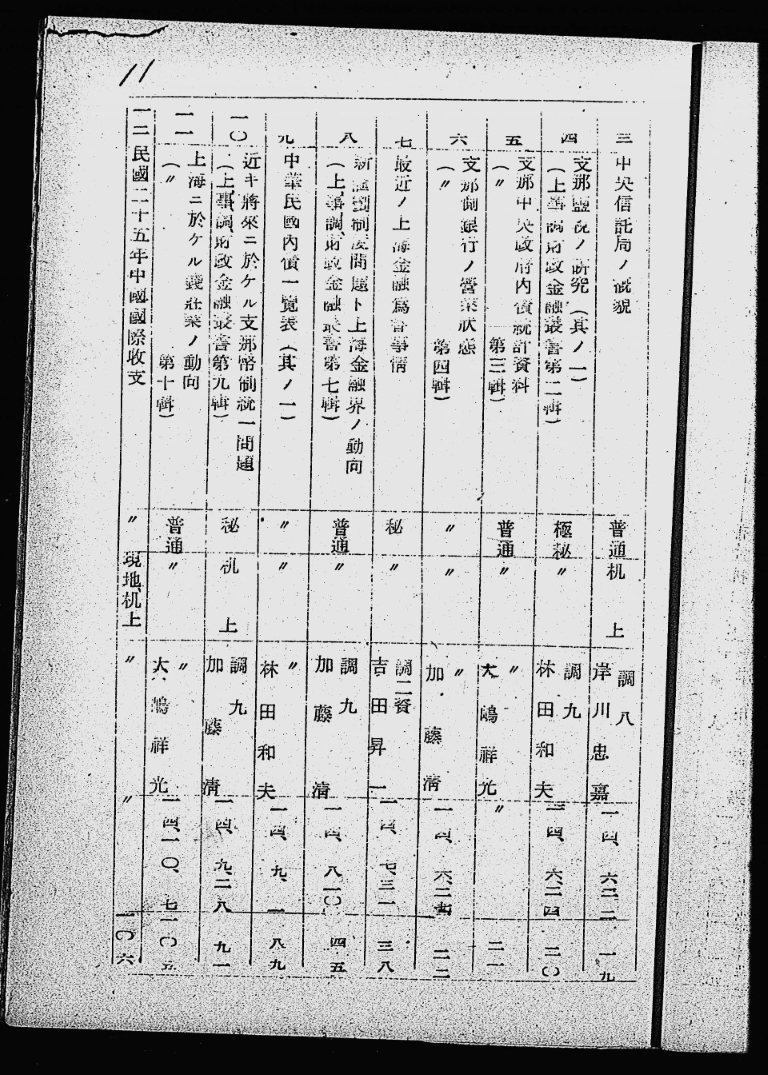 11
三 中央信託局ノ概貌 普通 机上 調八 岸川忠嘉 一四、六、二二 一九
四 支那鹽稅ノ研究(其ノ一)
(上海調財政金融叢書第二輯) 極秘 〃 調九 林田和夫 一四、六、二四 二〇
五 支那中央政府內債統計資料
(〃 第三輯) 普通 〃 〃 大鴻祥光 〃 二一
六 支那側銀行ノ營業狀態
(〃 第四輯) 〃 〃 〃 加藤清 一四、六、二四 二二
七 最近ノ上海金融爲替事情 秘 〃 調二資 吉田昇一 一四、七、三一 三八
八 制度問題ト上海金融界ノ動向
(上海調財政金融叢書第七輯) 普通 〃 調九 加藤清 一四、八、一〇 四五
九 中華民國內債一覽表(其ノ一) 〃 〃 〃 林田和夫 一四、九、一 八九
一〇 近キ將來ニ於ケル支那幣制統一問題
(上海調財政金融叢書第九輯) 秘 机上 調九 加藤清 一四、九、二八 九一
一一 上海ニ於ケル錢莊業ノ動向
(〃 第十輯) 普通 〃 〃 大鴻祥光 一四、一〇、七 一〇五
一二 民國二十五年中國國際收支 〃 現地、机上 〃 〃 一〇六